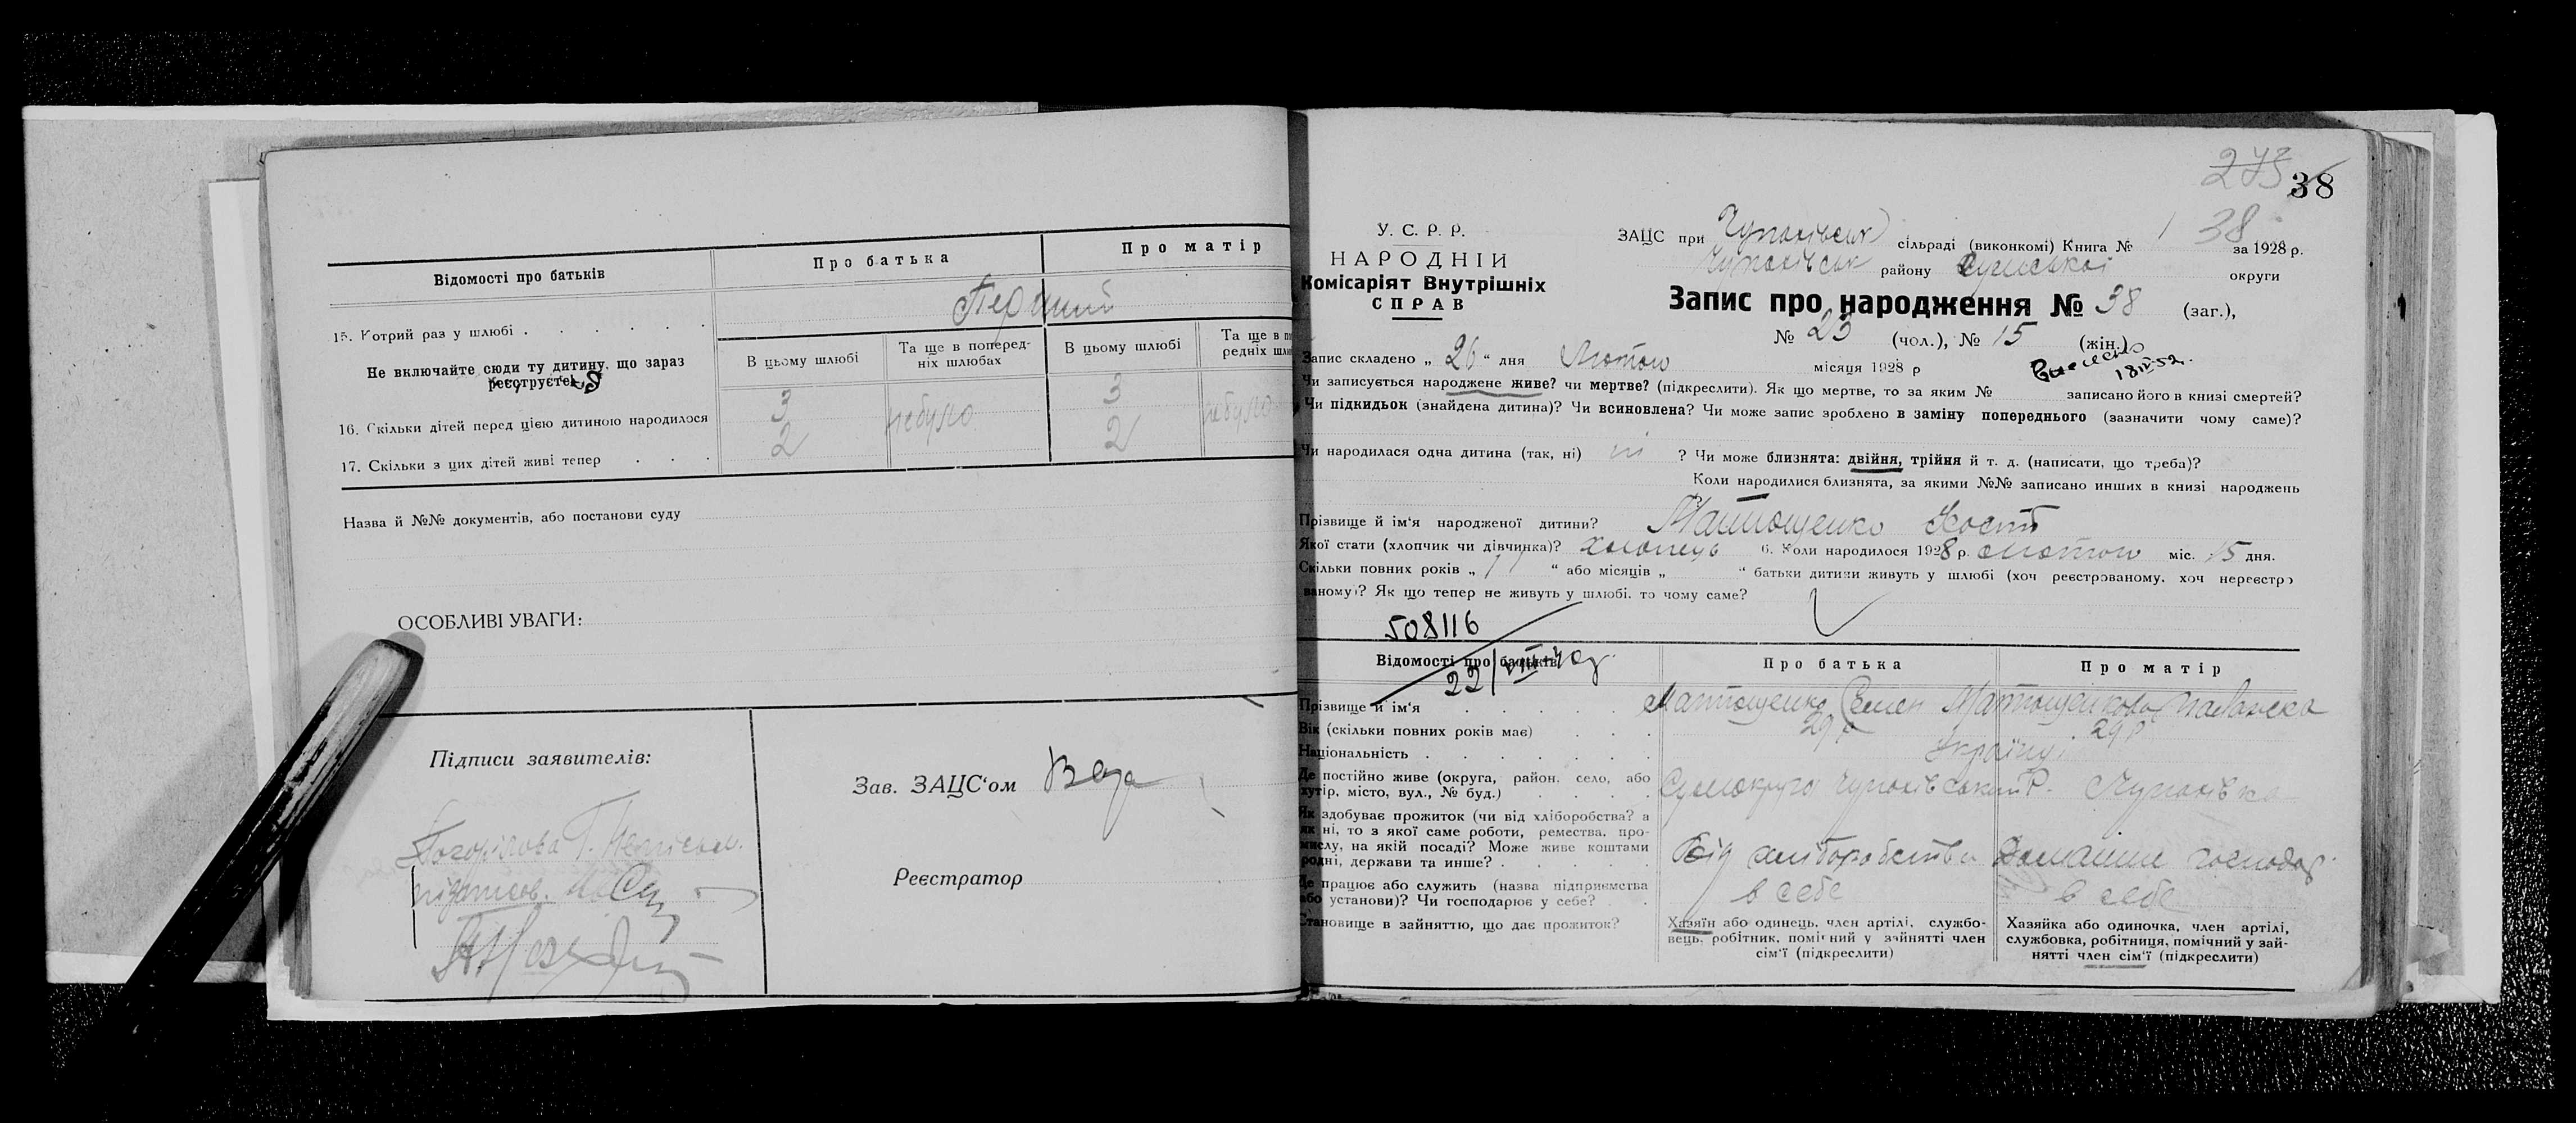 Відомості про батьків
Про батька
Про матір
15. Котрий раз у шлюбі
Перший
Не включайте сюди ту дитину, що зараз
реєструєте
В цьому шлюбі
Та ще в поперед-
ніх шлюбах
В цьому шлюбі
Та ще в по
редніх шлю
16. Скільки дітей перед цією дитиною народилося
3 небуло 3 небуло
17. Скільки з цих дітей живі тепер
2 2
Назва й №№ документів, або постанови суду
ОСОБЛИВІ УВАГИ:
Підписи заявителів:
Зав. ЗАЦС‘ом
Реєстратор
273
38
У. С. Р. Р.
НАРОДНІЙ
Комісаріят Внутрішніх
СПРАВ
ЗАЦС при Чупахівськ сільраді (виконкомі) Книга № 1 38 за 1928 р.
Чупахівськ району Сумської округи
Запис про народження № 38 (заг.),
№ 23 (чол.), № 15 (жін.)
Запис складено „ 26 “ дня Лютого місяця 1928 р
18 IV 52.
Чи записується народжене живе? чи мертве? (підкреслити). Як що мертве, то за яким № записано його в книзі смертей?
Чи підкидьок (знайдена дитина)? Чи всиновлена? Чи може запис зроблено в заміну попереднього (зазначити чому саме)?
Чи народилася одна дитина (так, ні) ні ? Чи може близнята: двійня, трійня й т. д. (написати, що треба)?
Коли народилися близнята, за якими №№ записано инших в книзі народжень
Прізвище й ім‘я народженої дитини? Матющенко Кость
Якої стати (хлопчик чи дівчинка)? хлопець 6. Коли народилося 1928 р. лютого міс. 15 дня.
Скільки повних років „ “ або місяців „ “ батьки дитини живуть у шлюбі (хоч реєстрованому, хоч нереєстро
ваному)? Як що тепер не живуть у шлюбі, то чому саме?
508116
Відомості про батьків
Про батька
Про матір
Прізвище й ім‘я
Матющенко Семен
Вік (скільки повних років має)
29 р
29 р
Національність
Україн
Де постійно живе (округа, район, село, або
хутір, місто, вул., № буд.)
Сумокруга Чупахівський Р. Чупахівка
Як здобуває прожиток (чи від хліборобства? а
як ні, то з якої саме роботи, ремества, про-
мислу, на якій посаді? Може живе коштами
родні, держави та инше?
Від хліборобства
Домашнє господар.
Де працює або служить (назва підприємства
або установи)? Чи господарює у себе?
в себе
в себе
Становище в зайняттю, що дає прожиток?
Хазяїн або одинець, член артілі, службо-
вець, робітник, помічний у зайнятті член
сім‘ї (підкреслити)
Хазяйка або одиночка, член артілі,
службовка, робітниця, помічний у зай-
нятті член сім‘ї (підкреслити)